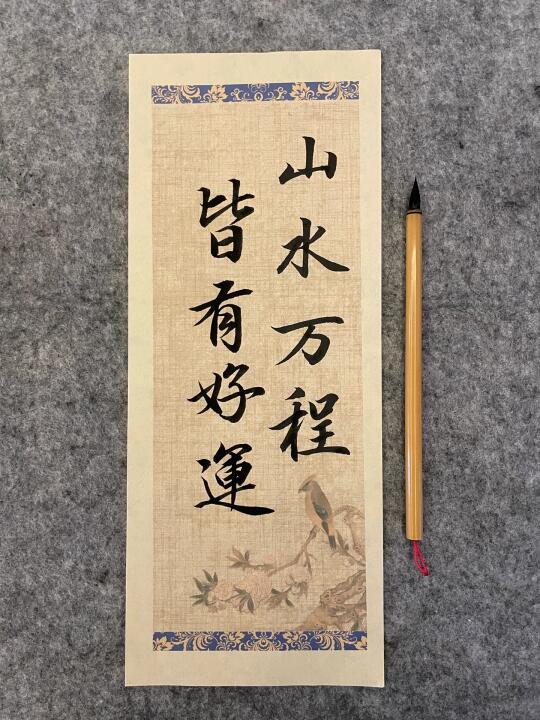 山水万程
皆有好運